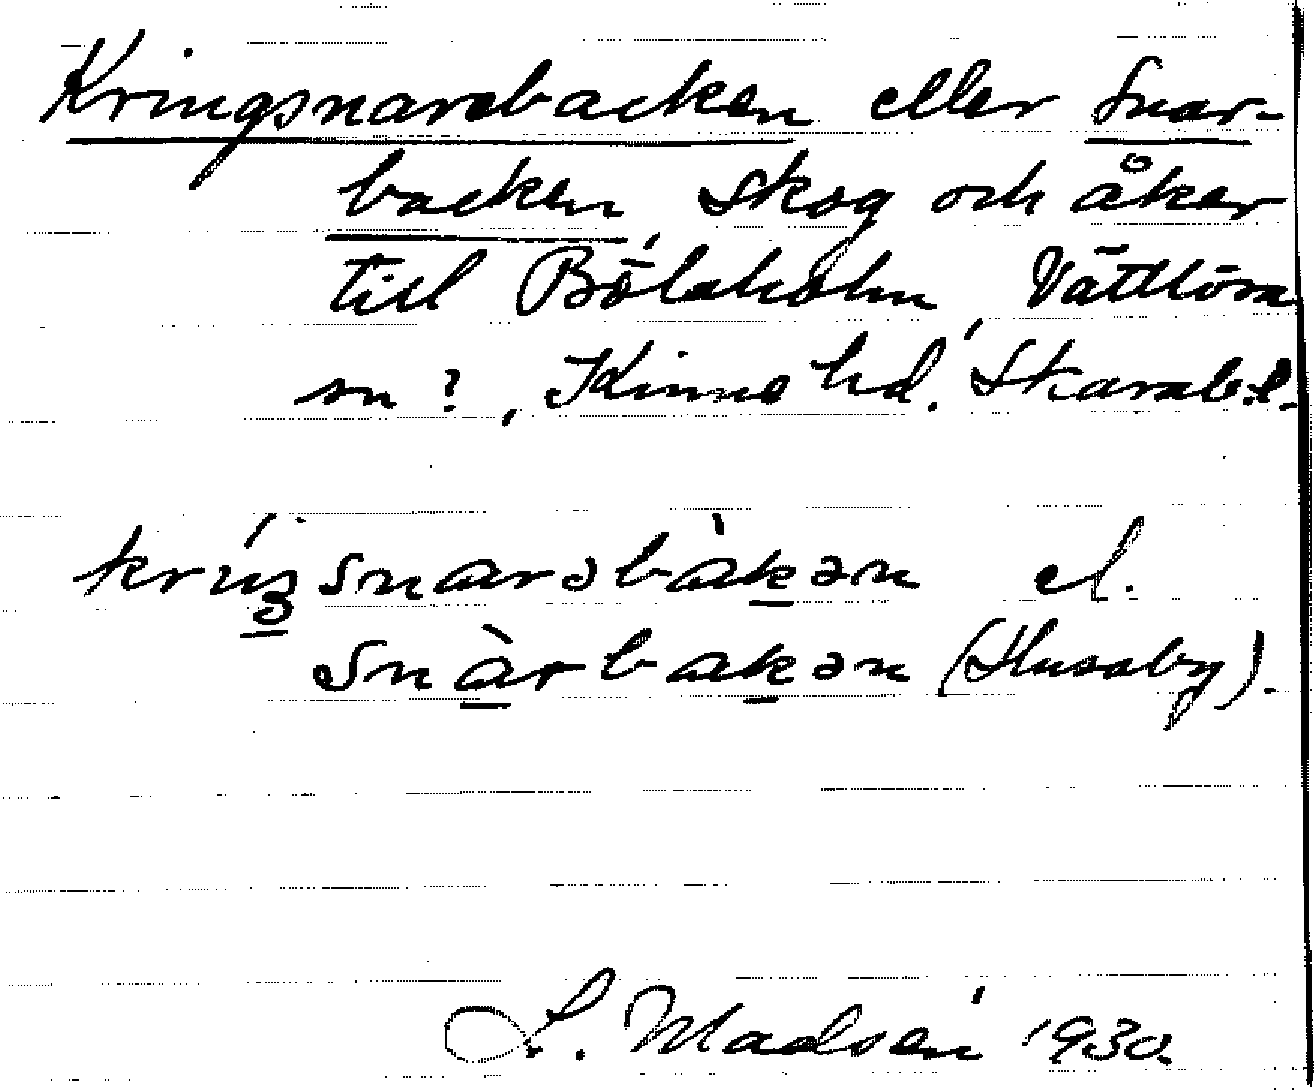 Kringsnarebacken eller Snar-
backen, skog och åker
till Bölaholm, Vättlösa
sn?, Kinne hd. Skarab.l.
kríŋsnarəbàkən el.
snàrbakən (Husaby).
L. Madsén 1930.